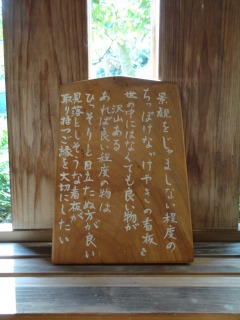 景観をじゃましない程度の
ちっぽけなけやきの看板を
世の中にはなくても良い物が
沢山ある
あれば良い程度の物は
ひっそりと目立たぬ方が良い
見落としそうな看板が
取り持つご縁を大切にしたい